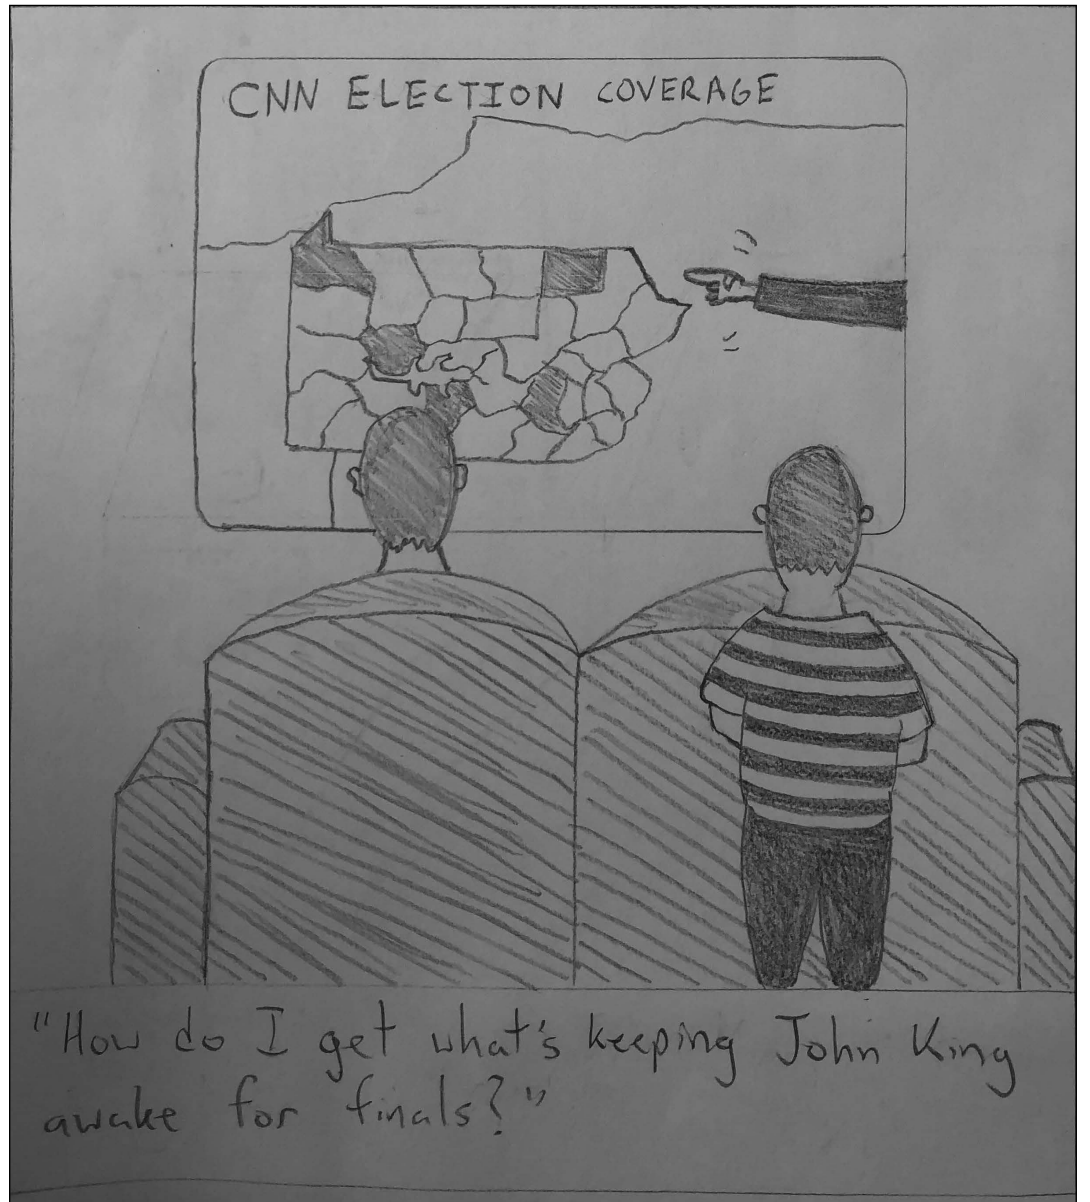 CNN ELECTION COVERAGE
"How do I get what's keeping John King
awake for finals?"